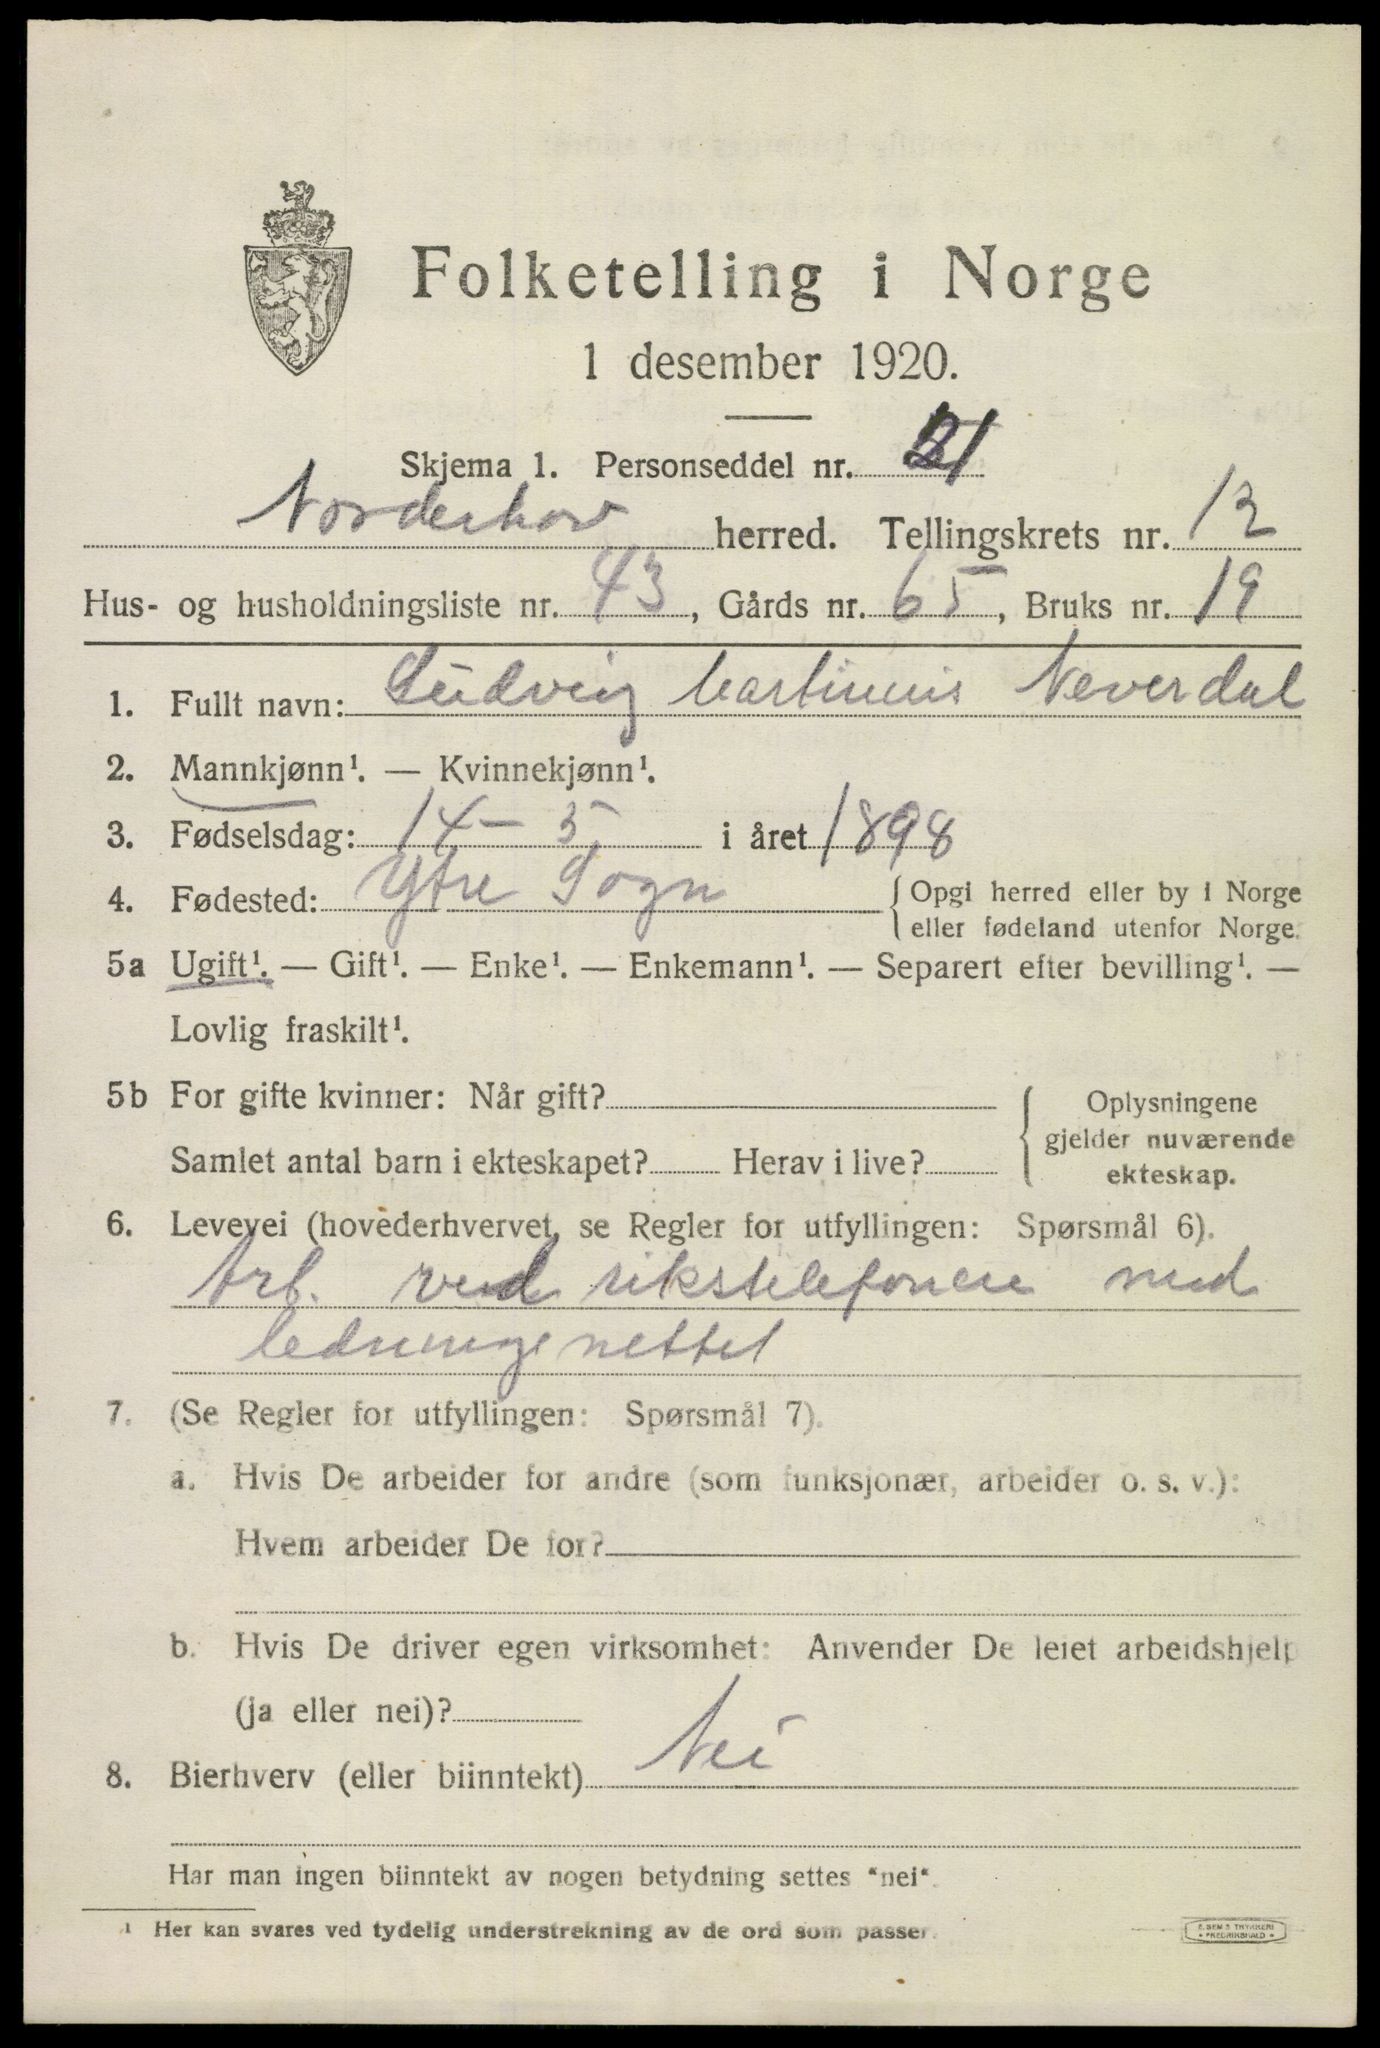 Folketelling i Norge
1 desember 1920.
Skjema 1. Personseddel nr. 21
Norderhov herred. Tellingskrets nr. 12
Hus- og husholdningsliste nr. 43, Gårds nr. 65, Bruks nr. 19
1. Fullt navn: Ludvig Martinius Neverdal
2. Mannkjønn¹. — Kvinnekjønn¹.
3. Fødselsdag: 14 - 5 i året 1898
4. Fødested: Ytre Sogn { Opgi herred eller by i Norge
eller fødeland utenfor Norge.
5a Ugift¹. — Gift¹. — Enke¹. — Enkemann¹. — Separert efter bevilling¹. —
Lovlig fraskilt¹.
5b For gifte kvinner: Når gift?
Samlet antal barn i ekteskapet? Herav i live?
{ Oplysningene
gjelder nuværende
ekteskap.
6. Levevei (hovederhvervet, se Regler for utfyllingen: Spørsmål 6).
Arb. ved rikstelefonen med
ledningsnettet
7. (Se Regler for utfyllingen: Spørsmål 7).
a. Hvis De arbeider for andre (som funksjonær, arbeider o. s. v.):
Hvem arbeider De for?
b. Hvis De driver egen virksomhet: Anvender De leiet arbeidshjelp
(ja eller nei)?
8. Bierhverv (eller biinntekt) Nei
Har man ingen biinntekt av nogen betydning settes "nei".
¹ Her kan svares ved tydelig understrekning av de ord som passer.
E. SEM'S TRYKKERI
• FREDRIKSHALD •